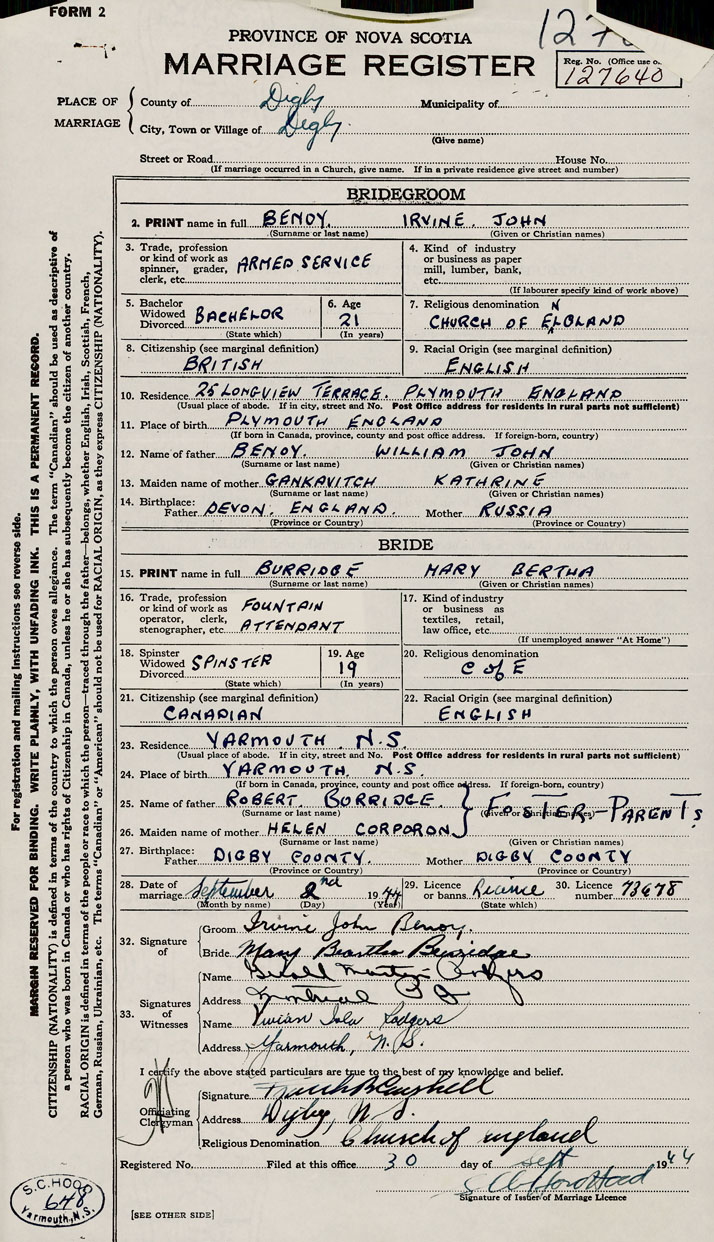 FORM 2
PROVINCE OF NOVA SCOTIA
MARRIAGE REGISTER
Reg. No. (Office use o
127640
PLACE OF MARRIAGE
County of Digby Municipality of
City, Town or Village of Digby
(Give name)
Street or Road House No.
(If marriage occurred in a Church, give name. If in a private residence give street and number)
BRIDEGROOM
2. PRINT name in full BENOY. IRVINE. JOHN
(Surname or last name) (Given or Christian names)
3. Trade, profession or kind of work as spinner, grader, clerk, etc. ARMED SERVICE
4. Kind of industry or business as paper mill, lumber, bank, etc.
(If labourer specify kind of work above)
5. Bachelor Widowed Divorced BACHELOR
(State which)
6. Age 21
(In years)
7. Religious denomination N
CHURCH OF ELGLAND
8. Citizenship (see marginal definition)
BRITISH
9. Racial Origin (see marginal definition)
ENGLISH
10. Residence 25 LONGVIEW TERRACE. PLYMOUTH ENGLAND
(Usual place of abode. If in city, street and No. Post Office address for residents in rural parts not sufficient)
11. Place of birth PLYMOUTH ENGLAND
(If born in Canada, province, county and post office address. If foreign-born, country)
12. Name of father BENOY. WILLIAM JOHN
(Surname or last name) (Given or Christian names)
13. Maiden name of mother GANKAVITCH KATHRINE
(Surname or last name) (Given or Christian names)
14. Birthplace: Father DEVON. ENGLAND. Mother RUSSIA
(Province or Country) (Province or Country)
BRIDE
15. PRINT name in full BURRIDGE MARY BERTHA
(Surname or last name) (Given or Christian names)
16. Trade, profession or kind of work as operator, clerk, stenographer, etc. FOUNTAIN ATTENDANT
17. Kind of industry or business as textiles, retail, law office, etc.
(If unemployed answer "At Home")
18. Spinster Widowed Divorced SPINSTER
(State which)
19. Age 19
(In years)
20. Religious denomination
C of E
21. Citizenship (see marginal definition)
CANADIAN
22. Racial Origin (see marginal definition)
ENGLISH
23. Residence YARMOUTH N.S.
(Usual place of abode. If in city, street and No. Post Office address for residents in rural parts not sufficient)
24. Place of birth YARMOUTH N.S.
(If born in Canada, province, county and post office address. If foreign-born, country)
25. Name of father ROBERT. BURRIDGE. FOSTER-PARENTS
(Surname or last name) (Given or Christian names)
26. Maiden name of mother HELEN CORPORON
(Surname or last name) (Given or Christian names)
27. Birthplace: Father DIGBY COUNTY. Mother DIGBY COUNTY
(Province or Country) (Province or Country)
28. Date of marriage September 2nd 1944
(Month by name) (Day) (Year)
29. Licence or banns
(State which)
30. Licence number 73678
32. Signature of
Groom Irvine John Benoy.
Bride Mary Beartha Burridge
33. Signatures of Witnesses
Name
Address
Name Vivian Isla Rodgers
Address Yarmouth, N.S.
I certify the above stated particulars are true to the best of my knowledge and belief.
Officiating Clergyman
Signature
Address Digby, N.S.
Religious Denomination Church of England
Registered No. Filed at this office 30 day of Sept 1944
Signature of Issuer of Marriage Licence
[SEE OTHER SIDE]
S.C. HOOD
648
Yarmouth, N.S.
For registration and mailing instructions see reverse side.
MARGIN RESERVED FOR BINDING. WRITE PLAINLY, WITH UNFADING INK. THIS IS A PERMANENT RECORD.
CITIZENSHIP (NATIONALITY) is defined in terms of the country to which the person owes allegiance. The term "Canadian" should be used as descriptive of
a person who was born in Canada or who has rights of Citizenship in Canada, unless he or she has subsequently become the citizen of another country.
RACIAL ORIGIN is defined in terms of the people or race to which the person—traced through the father—belongs, whether English, Irish, Scottish, French,
German, Russian, Ukrainian, etc. The terms "Canadian" or "American" should not be used for RACIAL ORIGIN, as they express CITIZENSHIP (NATIONALITY).